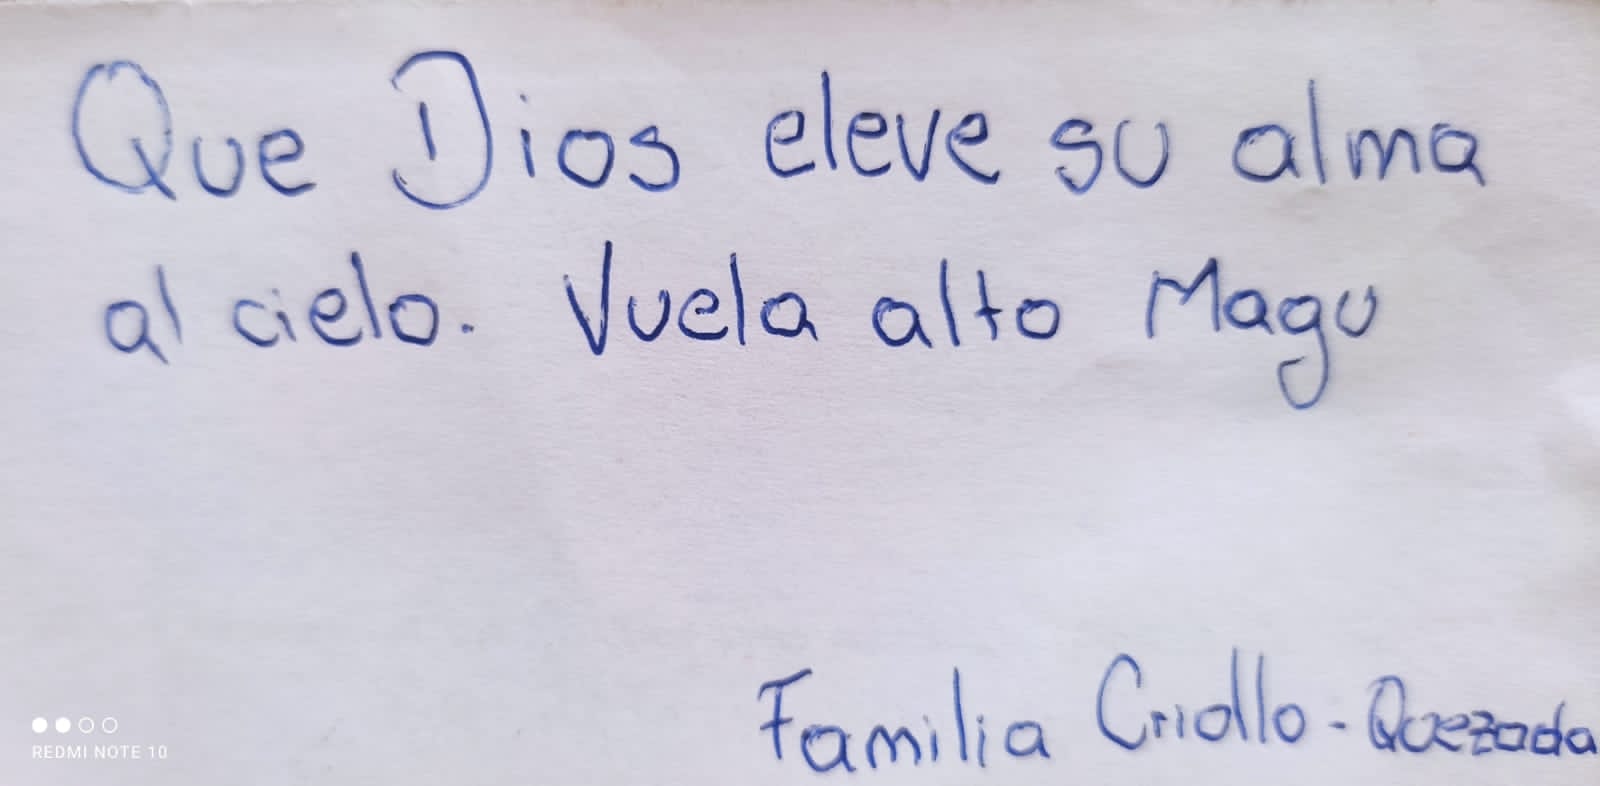 Que Dios eleve su alma
al cielo. Vuela alto Magu
Familia Criollo - Quezada
REDMI NOTE 10